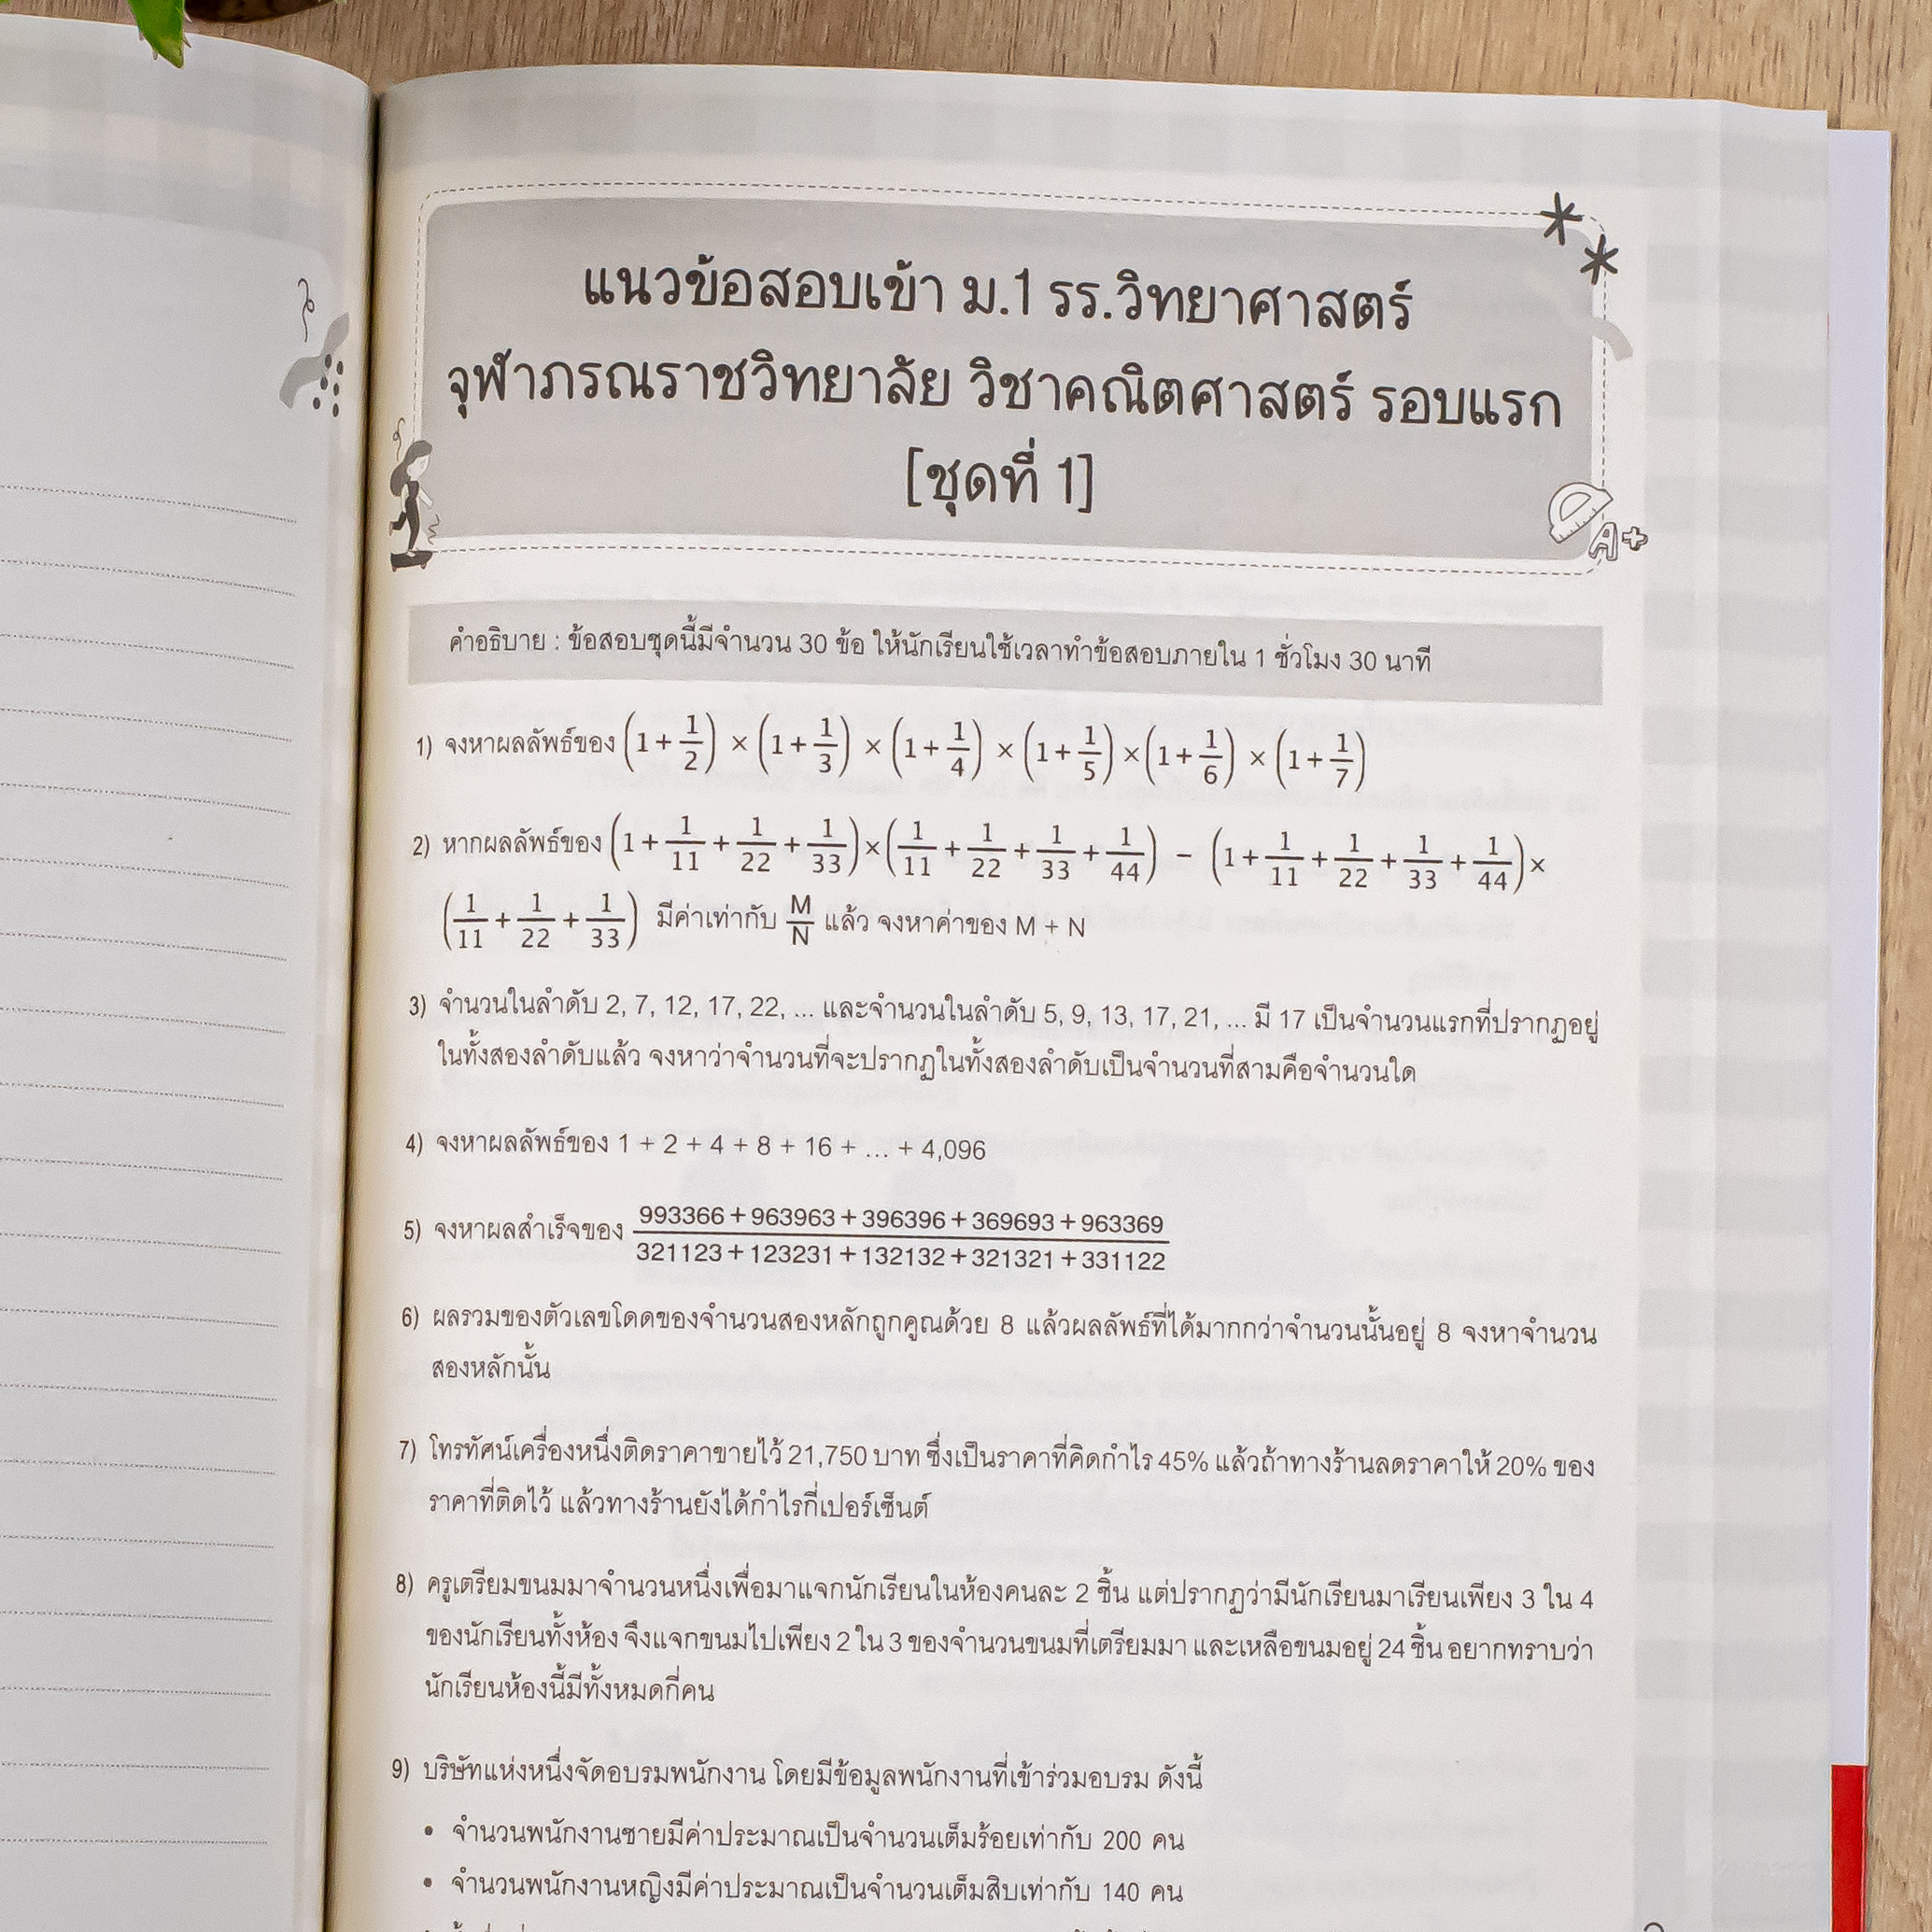 แนวข้อสอบเข้า ม.1 รร.วิทยาศาสตร์
จุฬาภรณราชวิทยาลัย วิชาคณิตศาสตร์ รอบแรก
[ชุดที่ 1]
A+
คำอธิบาย : ข้อสอบชุดนี้มีจำนวน 30 ข้อ ให้นักเรียนใช้เวลาทำข้อสอบภายใน 1 ชั่วโมง 30 นาที
1) จงหาผลลัพธ์ของ (1 + 1/2) × (1 + 1/3) × (1 + 1/4) × (1 + 1/5) × (1 + 1/6) × (1 + 1/7)
2) หากผลลัพธ์ของ (1 + 1/11 + 1/22 + 1/33) × (1/11 + 1/22 + 1/33 + 1/44) − (1 + 1/11 + 1/22 + 1/33 + 1/44) ×
(1/11 + 1/22 + 1/33) มีค่าเท่ากับ M/N แล้ว จงหาค่าของ M + N
3) จำนวนในลำดับ 2, 7, 12, 17, 22, ... และจำนวนในลำดับ 5, 9, 13, 17, 21, ... มี 17 เป็นจำนวนแรกที่ปรากฏอยู่
ในทั้งสองลำดับแล้ว จงหาว่าจำนวนที่จะปรากฏในทั้งสองลำดับเป็นจำนวนที่สามคือจำนวนใด
4) จงหาผลลัพธ์ของ 1 + 2 + 4 + 8 + 16 + ... + 4,096
5) จงหาผลสำเร็จของ (993366 + 963963 + 396396 + 369693 + 963369)/(321123 + 123231 + 132132 + 321321 + 331122)
6) ผลรวมของตัวเลขโดดของจำนวนสองหลักถูกคูณด้วย 8 แล้วผลลัพธ์ที่ได้มากกว่าจำนวนนั้นอยู่ 8 จงหาจำนวน
สองหลักนั้น
7) โทรทัศน์เครื่องหนึ่งติดราคาขายไว้ 21,750 บาท ซึ่งเป็นราคาที่คิดกำไร 45% แล้วถ้าทางร้านลดราคาให้ 20% ของ
ราคาที่ติดไว้ แล้วทางร้านยังได้กำไรกี่เปอร์เซ็นต์
8) ครูเตรียมขนมมาจำนวนหนึ่งเพื่อมาแจกนักเรียนในห้องคนละ 2 ชิ้น แต่ปรากฏว่ามีนักเรียนมาเรียนเพียง 3 ใน 4
ของนักเรียนทั้งห้อง จึงแจกขนมไปเพียง 2 ใน 3 ของจำนวนขนมที่เตรียมมา และเหลือขนมอยู่ 24 ชิ้น อยากทราบว่า
นักเรียนห้องนี้มีทั้งหมดกี่คน
9) บริษัทแห่งหนึ่งจัดอบรมพนักงาน โดยมีข้อมูลพนักงานที่เข้าร่วมอบรม ดังนี้
• จำนวนพนักงานชายมีค่าประมาณเป็นจำนวนเต็มร้อยเท่ากับ 200 คน
• จำนวนพนักงานหญิงมีค่าประมาณเป็นจำนวนเต็มสิบเท่ากับ 140 คน